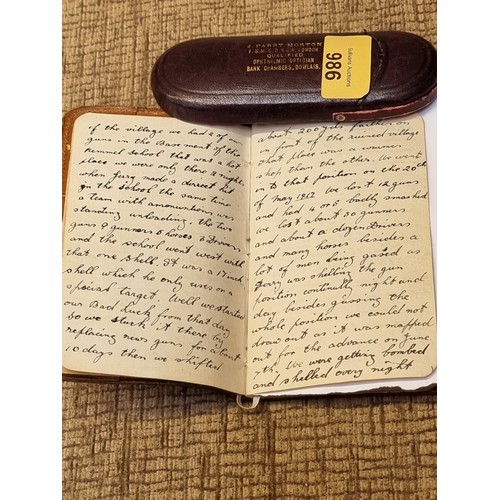 J. PARRY MORTON
QUALIFIED
OPHTHALMIC OPTICIAN
BANK CHAMBERS, DOWLAIS.
986
of the village we had 2 of our
guns in the Basement of the
Kemmel School that was a hot
place we were only there 2 nights
when Jurry made a direct hit
on the school the same time
a team with ammunition was
standing unloading. the two
guns 9 gunners 6 horses 3 Drivers
and the school went west with
that one shell. It was a 17 inch
shell which he only uses on a
special target. Well we started
our Bad Luck from that day
So we stuck it there by
replacing new guns for about
10 days then we shifted
about 200 yds farther on
in front of the ruined village
that place was a worse
shop than the other. We went
in to that position on the 20th
of May 1917 we lost 12 guns
and had 4 badly smashed
we lost about 30 gunners
and about a dozen Drivers
and many horses besides a
lot of men being gassed as
Jerry was shelling the gun
position continually night and
day besides gassing the
whole position we could not
draw out as it was mapped
out for the advance on June
7th. We were getting bombed
and shelled every night